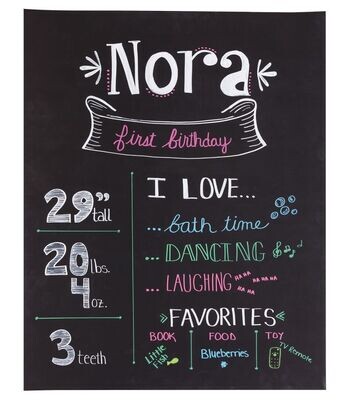 Nora
first birthday
29”
tall
20 lbs.
4 oz.
3
teeth
I LOVE...
...bath time
...DANCING
...LAUGHING HA HA HA HA HA HA HA
FAVORITES
BOOK FOOD TOY
Little Fish Blueberries TV Remote